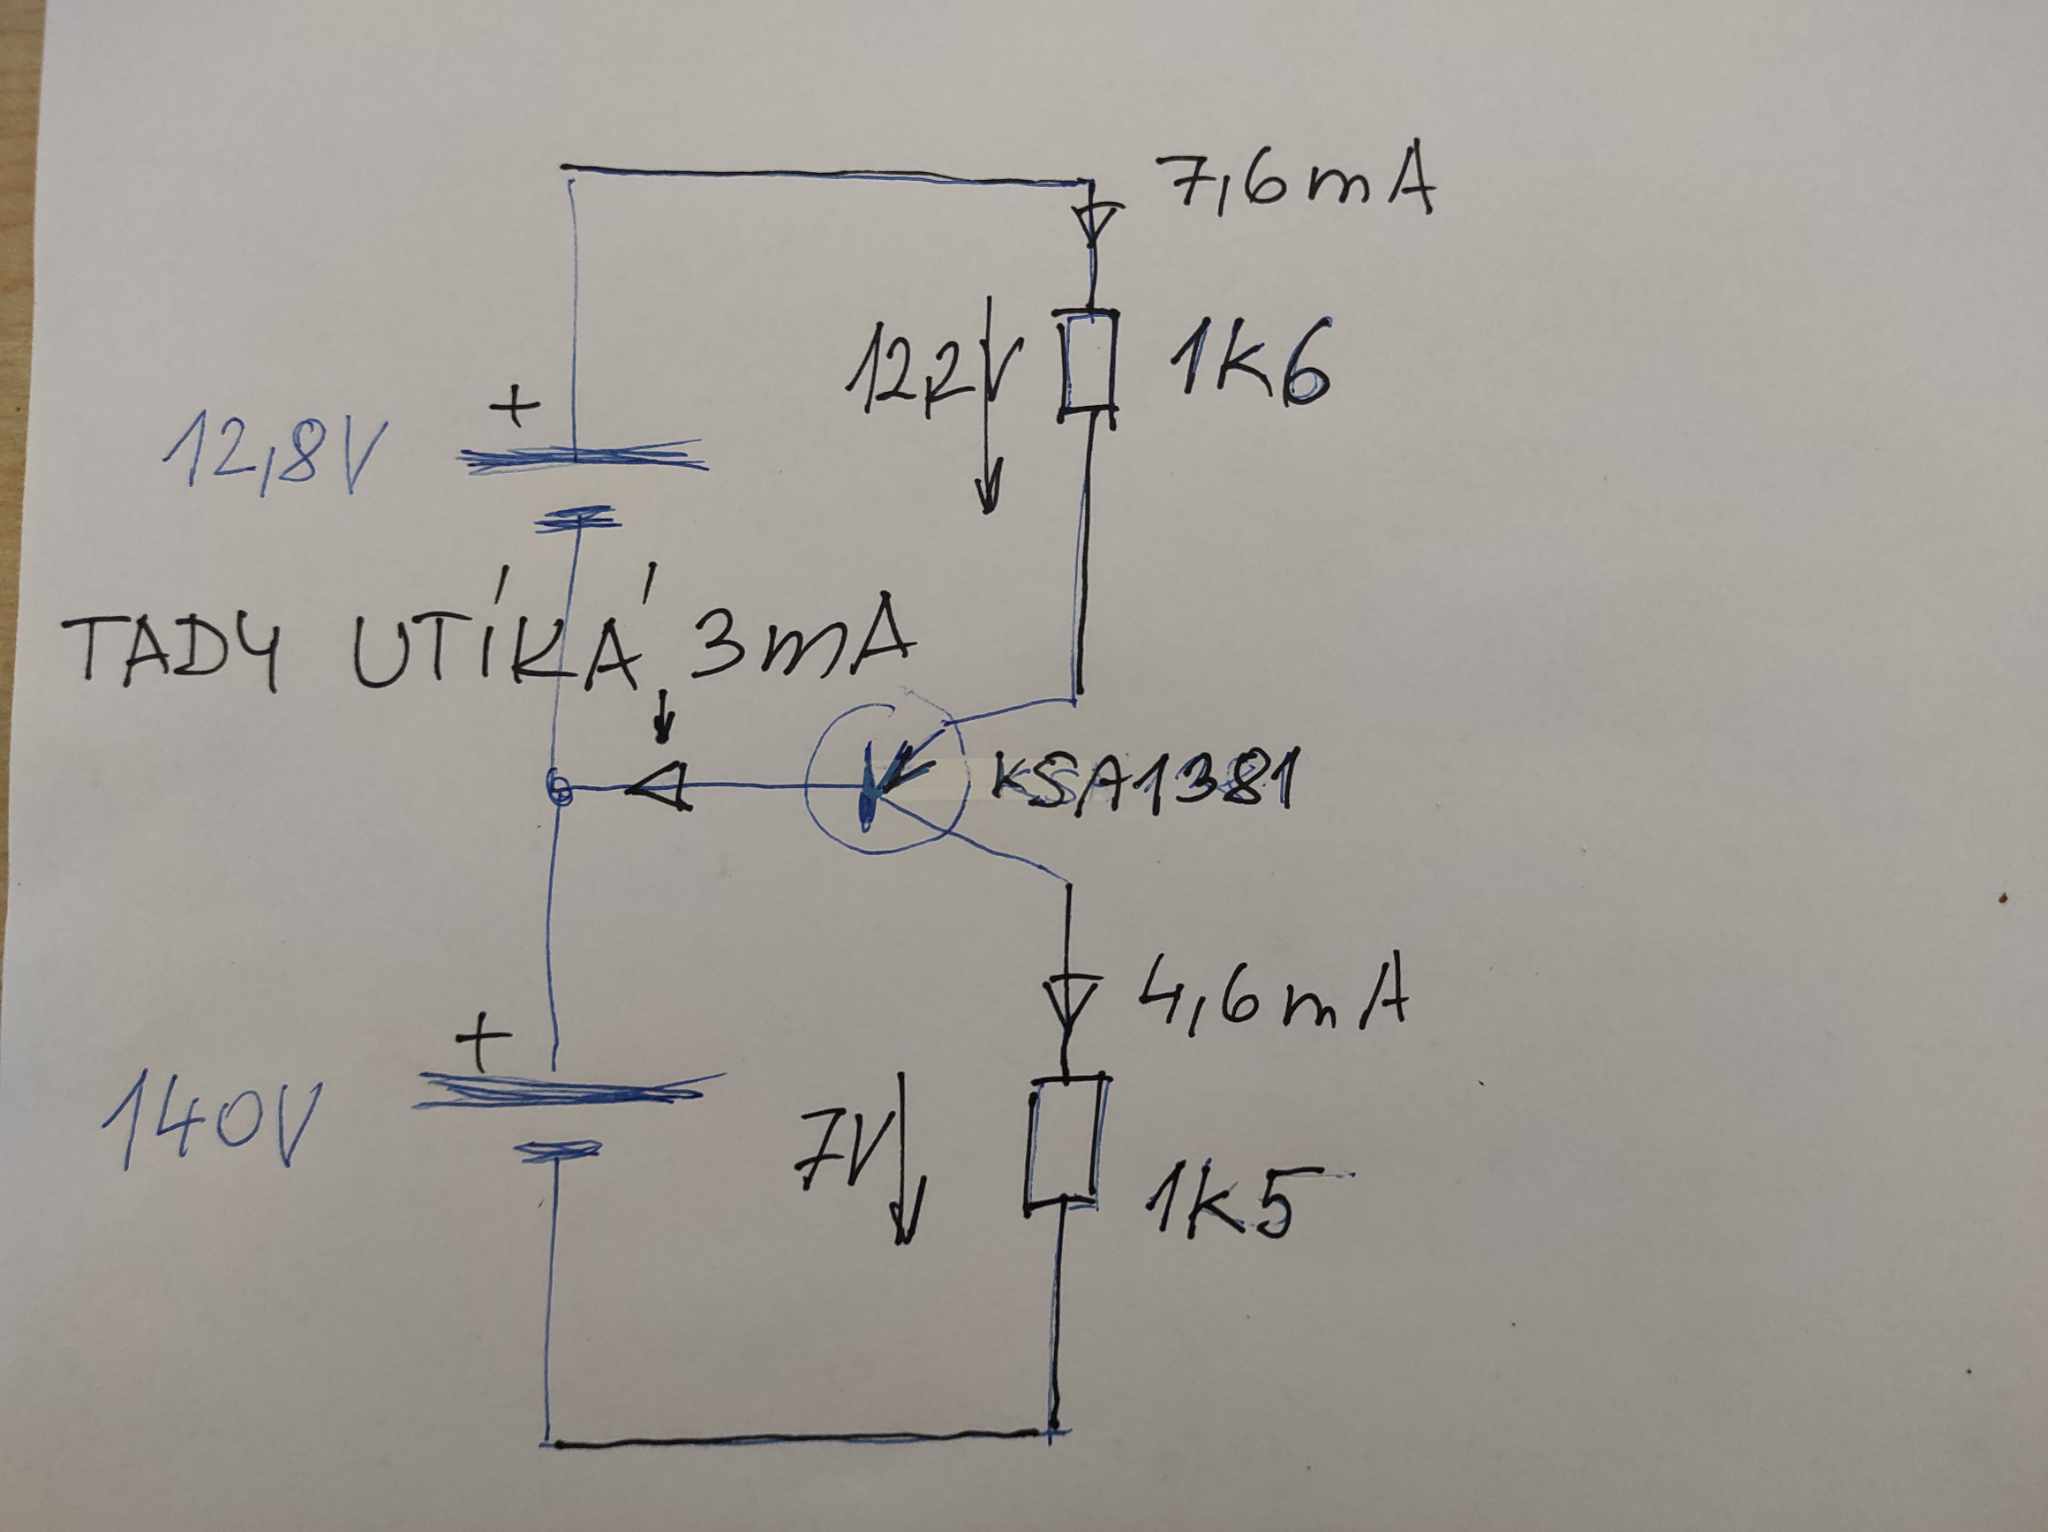 7,6mA
12,2V
1k6
+
12,8V
TADY UTÍKÁ 3mA
KSA1381
4,6mA
+
140V
7V
1k5